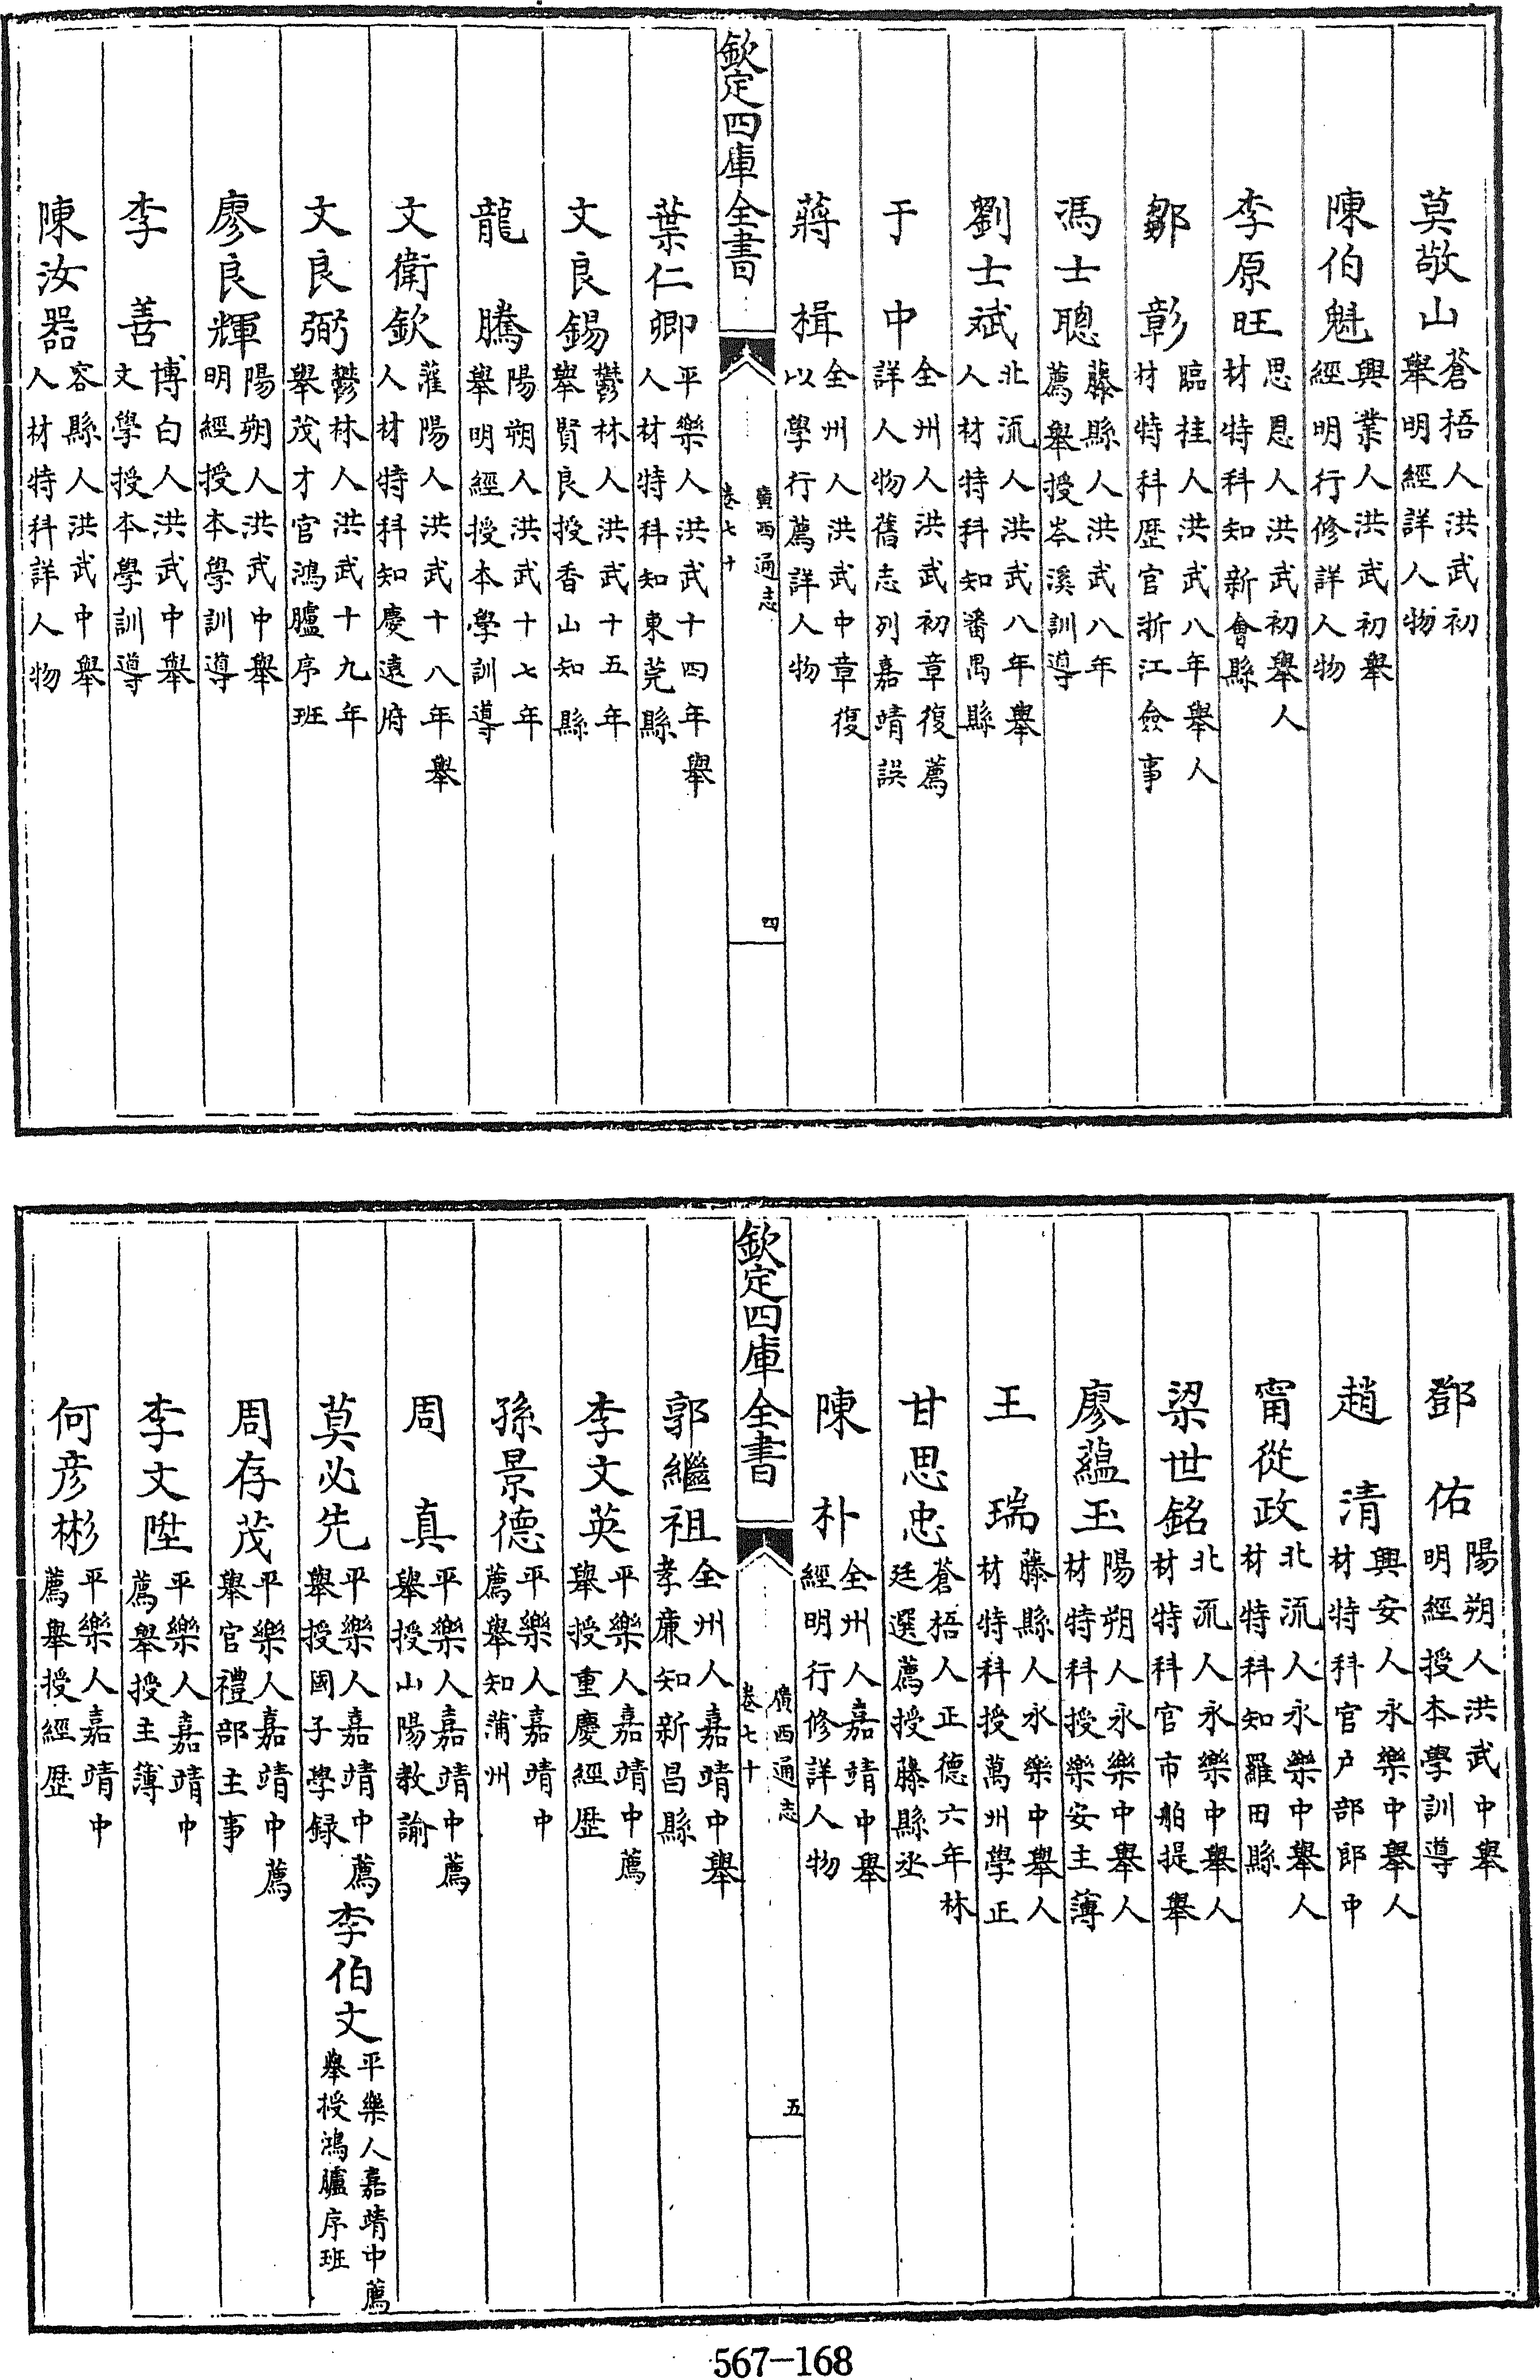 莫敬山蒼梧人洪武初舉明經詳人物
陳伯魁興業人洪武初舉經明行修詳人物
李原旺思恩人洪武初舉人材特科知新會縣
鄒彰臨桂人洪武八年舉人材特科歴官浙江僉事
馮士聰藤縣人洪武八年薦舉授岑溪訓導
劉士斌北流人洪武八年舉人材特科知番禺縣
于中全州人洪武初章復薦詳人物舊志列嘉靖誤
蔣楫全州人洪武中章復以學行薦詳人物
欽定四庫全書
廣西通志
卷七十
四
葉仁卿平樂人洪武十四年舉人材特科知東莞縣
文良錫鬱林人洪武十五年舉賢良授香山知縣
龍騰陽朔人洪武十七年舉明經授本學訓導
文衛欽灌陽人洪武十八年舉人材特科知慶遠府
文良弼鬱林人洪武十九年舉茂才官鴻臚序班
廖良輝陽朔人洪武中舉明經授本學訓導
李善博白人洪武中舉文學授本學訓導
陳汝噐容縣人洪武中舉人材特科詳人物
鄧佑陽朔人洪武中舉明經授本學訓導
趙清興安人永樂中舉人材特科官户部郎中
甯從政北流人永樂中舉人材特科知羅田縣
梁世銘北流人永樂中舉人材特科官市舶提舉
廖藴玉陽朔人永樂中舉人材特科授樂安主薄
王瑞藤縣人永樂中舉人材特科授萬州學正
甘思忠蒼梧人正德六年林廷選薦授藤縣丞
陳朴全州人嘉靖中舉經明行修詳人物
欽定四庫全書
廣西通志
卷七十
五
郭繼祖全州人嘉靖中舉孝廉知新昌縣
李文英平樂人嘉靖中薦舉授重慶經歴
孫景德平樂人嘉靖中薦舉知蒲州
周真平樂人嘉靖中薦舉授山陽教諭
莫必先平樂人嘉靖中薦舉授國子學録李伯文平樂人嘉靖中薦舉授鴻臚序班
周存茂平樂人嘉靖中薦舉官禮部主事
李文陞平樂人嘉靖中薦舉授主薄
何彦彬平樂人嘉靖中薦舉授經歴
567-168